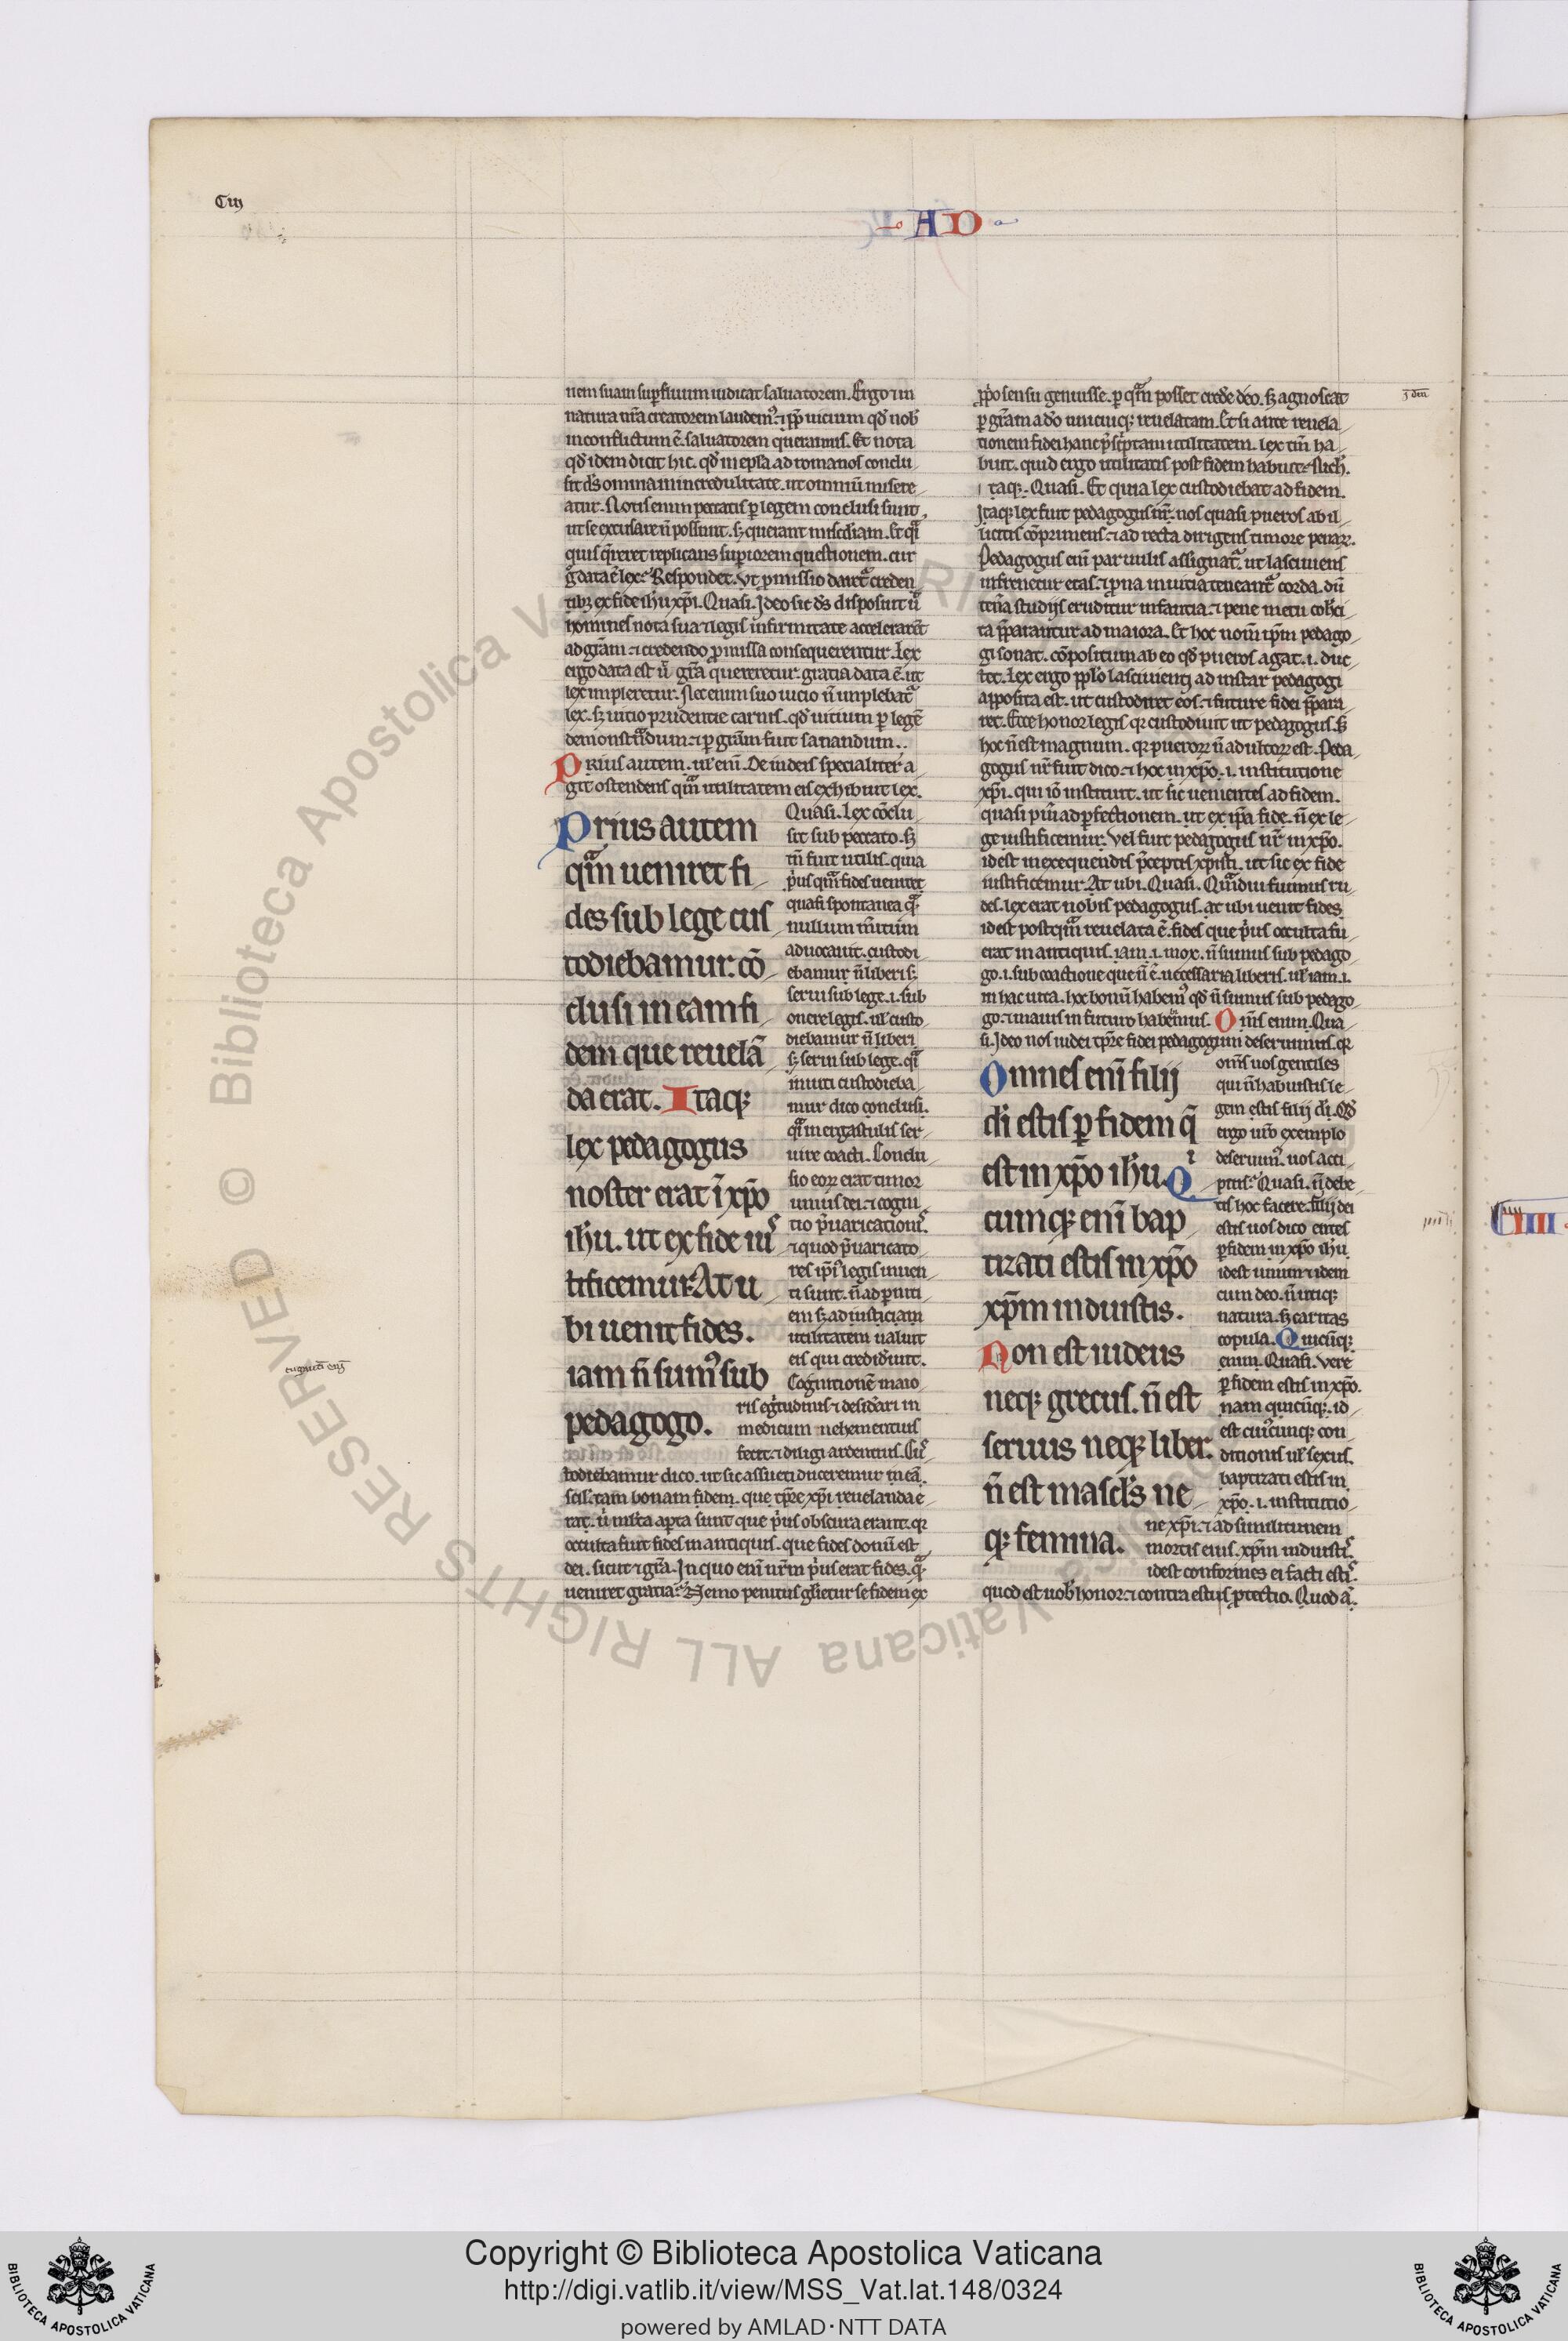 Ciij
A D
nem suam supfluum iudicat saluatorem. Ergo ⁊ in
natura nr̃a creatorem laudem⁹. ⁊ ꝓp̃ uicium qd̾ nob̾
in conflictum ẽ. saluatorem queramus. Et nota
qd̾ idem dicit hic. qd̾ in ep̃la ad romanos conclu
sit d̃s omnia in incredulitate. ut omniũ misere
atur. Notis enim peccatis ꝑ legem conclusi sunt,
ut se excusare ñ possunt. sꝫ querant miscd̾iam. Et q̃i
quis q̃reret replicans supiorem questionem. cur
g̊ data ẽ lex. Respondet. Vt ꝓmissio daret᷑ creden
tibꝫ ex fide ih̾u xp̃i. Quasi. Ideo sic d̃s disposuit ũ
homines nota sua ⁊ legis infirmitate accelerarẽt
ad gr̃am. ⁊ credendo ꝓmissa consequerentur. Lex
ergo data est ũ gr̃a quereretur. gratia data ẽ. ut
lex impleretur. Nec enim suo uicio ñ implebat᷑
lex. sꝫ uitio prudentie carnis. qd̾ uitium ꝑ legẽ
demonstrãdum. ⁊ ꝑ gr̃am fuit sanandum.
Prius autem. ul̾ eni̾. De iudeis specialiter a
git ostendens q̃m utilitatem eis exhibuit lex.
Prius autem
q̃m ueniret fi
des sub lege cus
todiebamur. cõ
clusi in eam fi
dem que reuelã
da erat. Itaqꝫ
lex pedagogus
noster erat ĩ xp̃o
ih̾u. ut ex fide ius
tificemur. At u
bi uenit fides.
iam ñ sum⁹ sub
pedagogo.
Quasi. Lex cõclu
sit sub peccato. sꝫ
tñ fuit utilis. quia
p̾us q̃m fides ueniret
quasi spontanea q̃.
nullum mr̃itum
aduocauit. custodi
ebamur ñ liberi sꝫ
serui sub lege. i. sub
onere legis. ul̾ custo
diebamur ñ liberi
sꝫ serui sub lege. q̃i
inuiti custodieba
mur dico conclusi.
q̃i in ergastulis ser
uire coacti. Conclu
sio eoꝝ erat timor
unius dei. ⁊ cogni
tio p̃uaricationis̾.
⁊ quod p̃uaricato
res ip̾i⁹ legis inuen
ti sunt. ñ ad pniti
em sꝫ ad iusticiam
utilitatem ualuit
eis qui crediderunt.
Cognitionẽ maio
ris eg̾tudinis ⁊ desid̾ari in
medicum uehementius
fecit. ⁊ diligi ardentius. Cus
todiebamur dico. ut sic assueti duceremur in eã.
scilicet tam bonam fidem. que tp̃re xp̃i reuelanda e
rat. ũ multa aꝑta sunt que p̾us obscura erant. qr
occulta fuit fides in antiquis. que fides donũ est
dei. sicut ⁊ gr̃a. In quo eni̾ nr̃m p̾us erat fides. q̃.
ueniret gratia. Nemo penitus gl̾ietur se fidem ex
ꝓp̾o sensu genuisse. ꝑ q̃m posset crede̾ deo. sꝫ agnoscat
ꝑ gr̃am a deo unicuiqꝫ reuelatam. Et si ante reuela
tionem fidei hanc p̃sc̾ptam utilitatem. lex tm̃ ha
buit. quid ergo utilitatis post fidem habuit.
itaqꝫ. Quasi. Et quia lex custodiebat ad fidem.
Itaqꝫ lex fuit pedagogus nr̃. nos quasi pueros ab il
licitis cõprimens. ⁊ ad recta dirigens timore penaꝝ.
Pedagogus eni̾ paruulis assignat᷑. ut lasciuiens
infrenetur etas. ⁊ ꝓna in uitia teneant᷑ corda. dũ
ten̾a studiis eruditur infantia. ⁊ pene metu coh̾ci
ta p̃parantur ad maiora. Et hoc nom̾ ip̃m pedago
gi sonat. cõpositum ab eo qd̾ pueros agat. i. duc
tet. Lex ergo pp̾lo lasciuienti ad instar pedagogi
apposita est. ut custodiret eos. ⁊ future fidei p̃para
ret. Ecce honor legis qr custodiuit ut pedagogus. sꝫ
hoc ñ est magnum. qr pueroꝝ ñ adultoꝝ est. Peda
gogus nr̃ fuit dico. ⁊ hoc in xp̃o. i. institutione
xp̃i. qui iõ instituit. ut sic uenientes ad fidem.
quasi pueri ad ꝑfectionem. ut ex ip̃a fide. ñ ex le
ge iustificemur. Vel fuit pedagogus nr̃ in xp̃o.
id est in exequendis p̃ceptis xpisti. ut sic ex fide
iustificemur. At ubi. Quasi. Q̃mdiu fuimus ru
des. lex erat nobis pedagogus. at ubi uenit fides
id est postq̃m reuelata ẽ. fides que p̾us occulta fu
erat in antiquis. iam. i. mox. ñ sumus sub pedago
go. i. sub coactione que ñ ẽ. necessaria liberis. ul̾ iam. i.
in hac uita. hoc bonũ habem⁹ qd̾ ñ sumus sub pedago
go. ⁊ mauis in futuro habebimus. Om̃s enim. Qua
si. Ideo nos iudei tp̃re fidei pedagogum deseruimus. qr
Omnes eni̾ filij
di̾ estis ꝑ fidem q̃
est in xp̃o ih̾u. Qi
cumqꝫ eni̾ bap
tizati estis in xp̃o
xp̃m induistis.
Non est iudeus
neqꝫ grecus. ñ est
seruus neqꝫ liber.
ñ est mascl̾s ne
qꝫ femina.
om̃s uos gentiles
qui ñ habuistis le
gem estis filij di̾. Qd̾
ergo nr̃o exemplo
deseruim⁹. uos acci
pitis. Quasi. ñ debe
tis hoc facere. filij dei
estis uos dico entes
ꝑ fidem in xp̃o ih̾u
id est unum ⁊ idem
cum deo. ñ utiqꝫ
natura. sꝫ caritas
copula. Quicũqꝫ
enim. Quasi. Vere
ꝑ fidem estis in xp̃o.
nam quicũqꝫ. id
est cui⁹cunqꝫ con
ditionis ul̾ sexus.
baptizati estis in
xp̃o. i. institutio
ne xp̃i. ⁊ ad similitudinem
mortis eius. xp̃m induistis̾.
id est conformes ei facti estis̾.
quod est uob̾ honor. ⁊ contra estus ꝓtectio. Quod a̾.
Copyright © Biblioteca Apostolica Vaticana
http://digi.vatlib.it/view/MSS_Vat.lat.148/0324
powered by AMLAD·NTT DATA
BIBLIOTECA APOSTOLICA VATICANA
BIBLIOTECA APOSTOLICA VATICANA
© Biblioteca Apostolica Vaticana ALL RIGHTS RESERVED